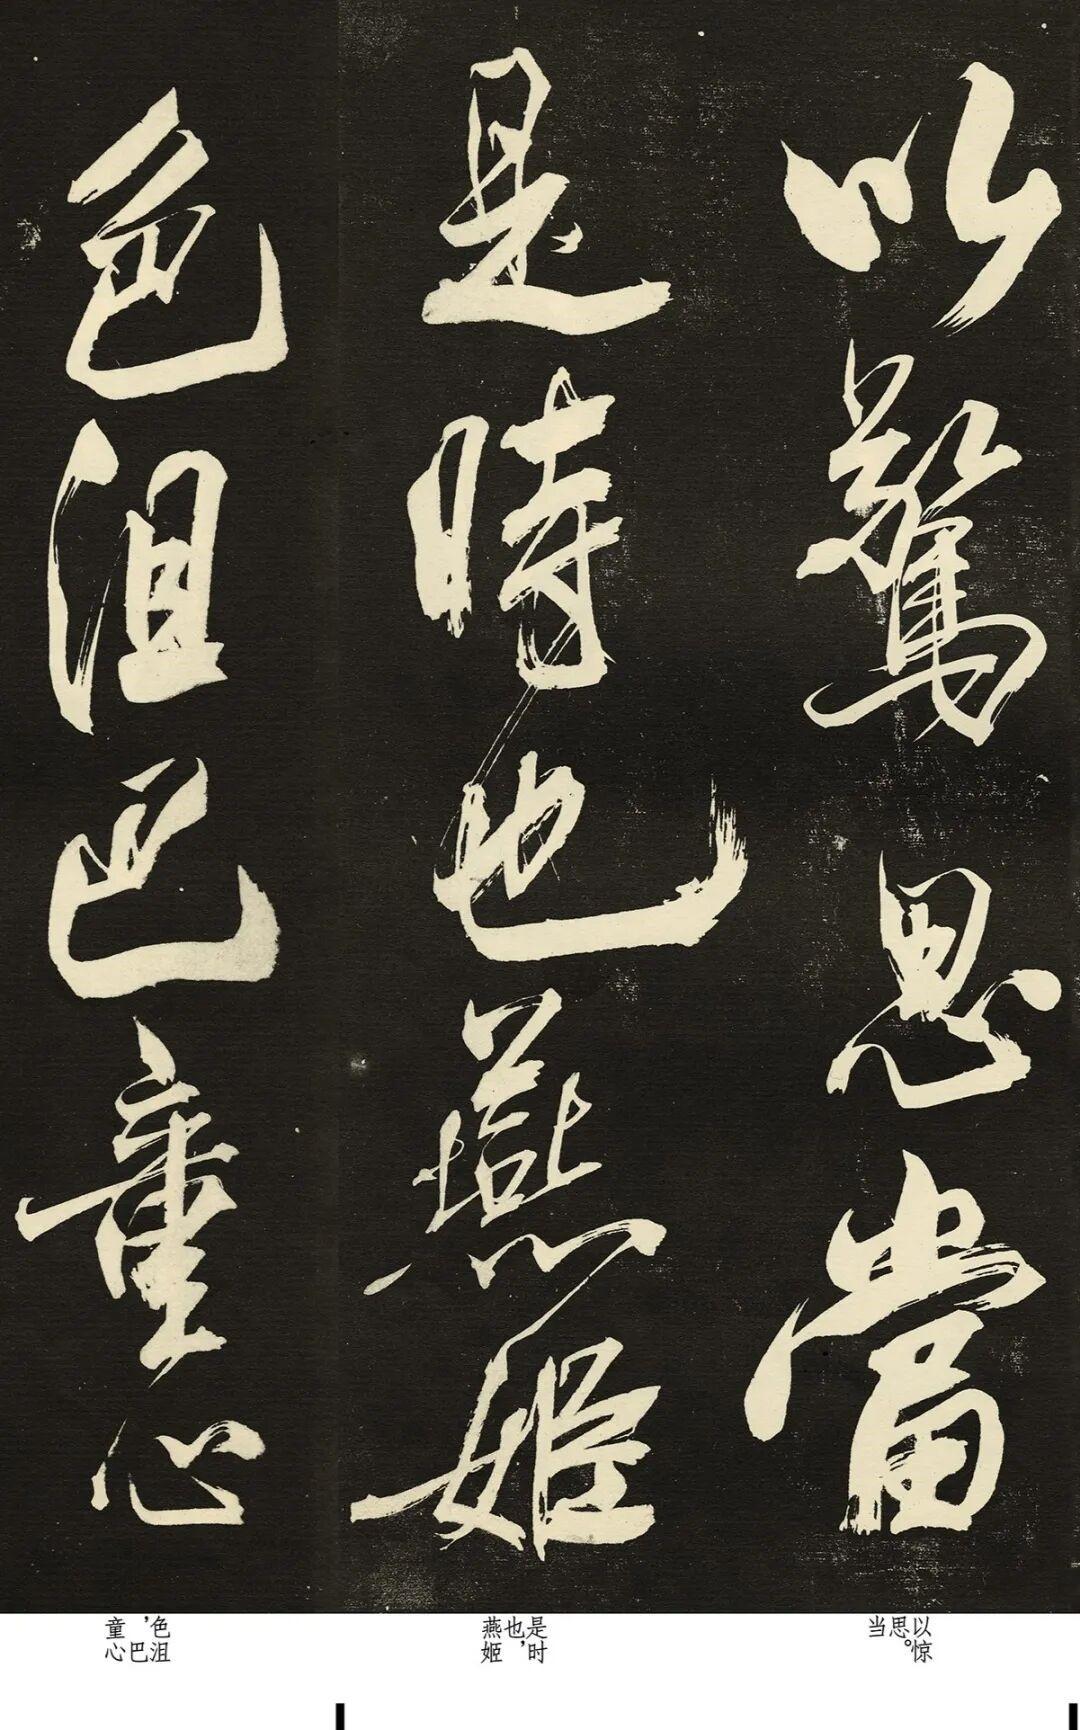 以驚思當
是時也燕姬
色沮巴童心
以惊
思。
当
是时
也，
燕姬
色沮
，巴
童心